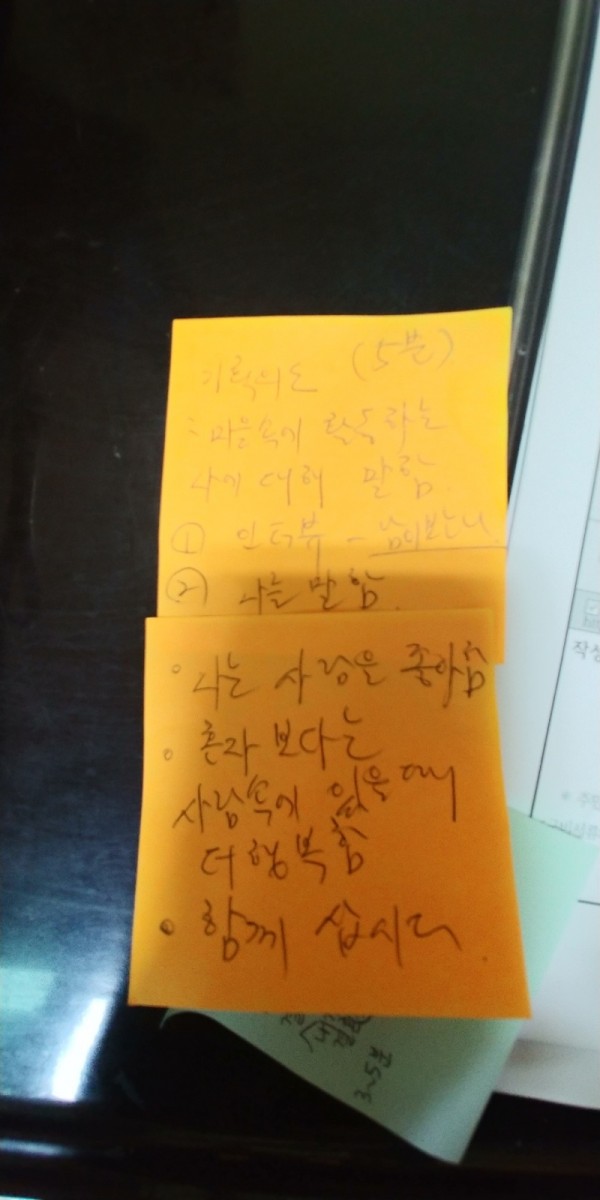 기획의도 (5분)
: 마음속에 록하는
나에 대해 말함.
① 인터뷰 - 남이보는나
② 나를 말함.
• 나는 사랑을 좋아함
• 혼자 보다는
사람속에 있을 때
더 행복함
• 함께 삽시다.
3~5분
작성